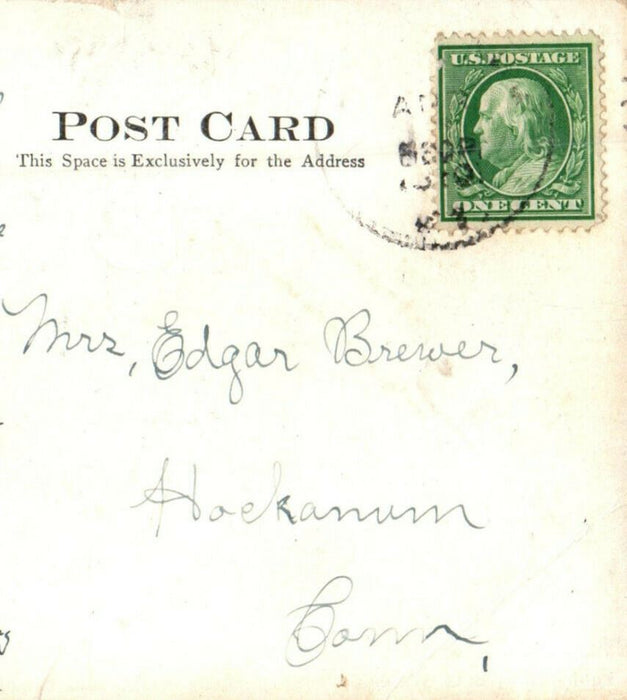 U.S. POSTAGE
POST CARD
This Space is Exclusively for the Address
ONE CENT
Mrs, Edgar Brewer,
Hockanum
Conn,